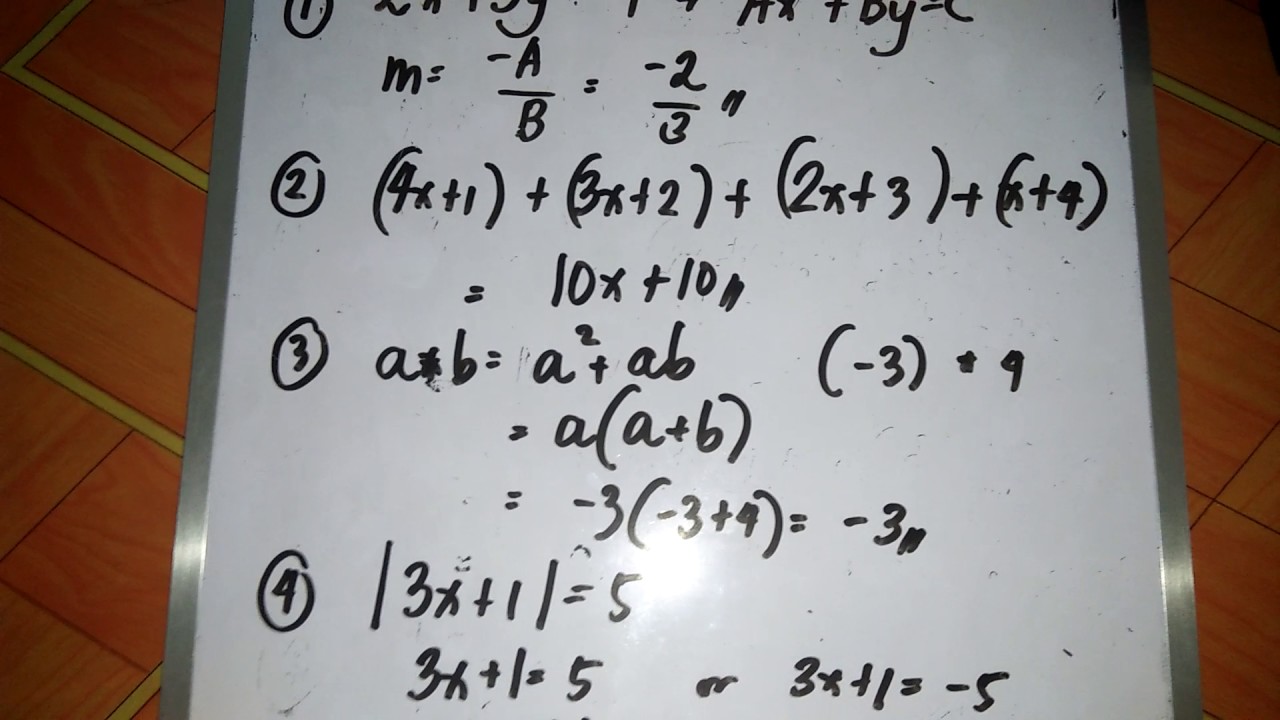 ① 2x + 3y = → Ax + By = C
m = -A/B = -2/3 //
② (4x+1) + (3x+2) + (2x+3) + (x+4)
= 10x + 10 //
③ a*b = a² + ab (-3) * 4
= a(a+b)
= -3(-3+4) = -3 //
④ |3x+1| = 5
3x+1 = 5 or 3x+1 = -5